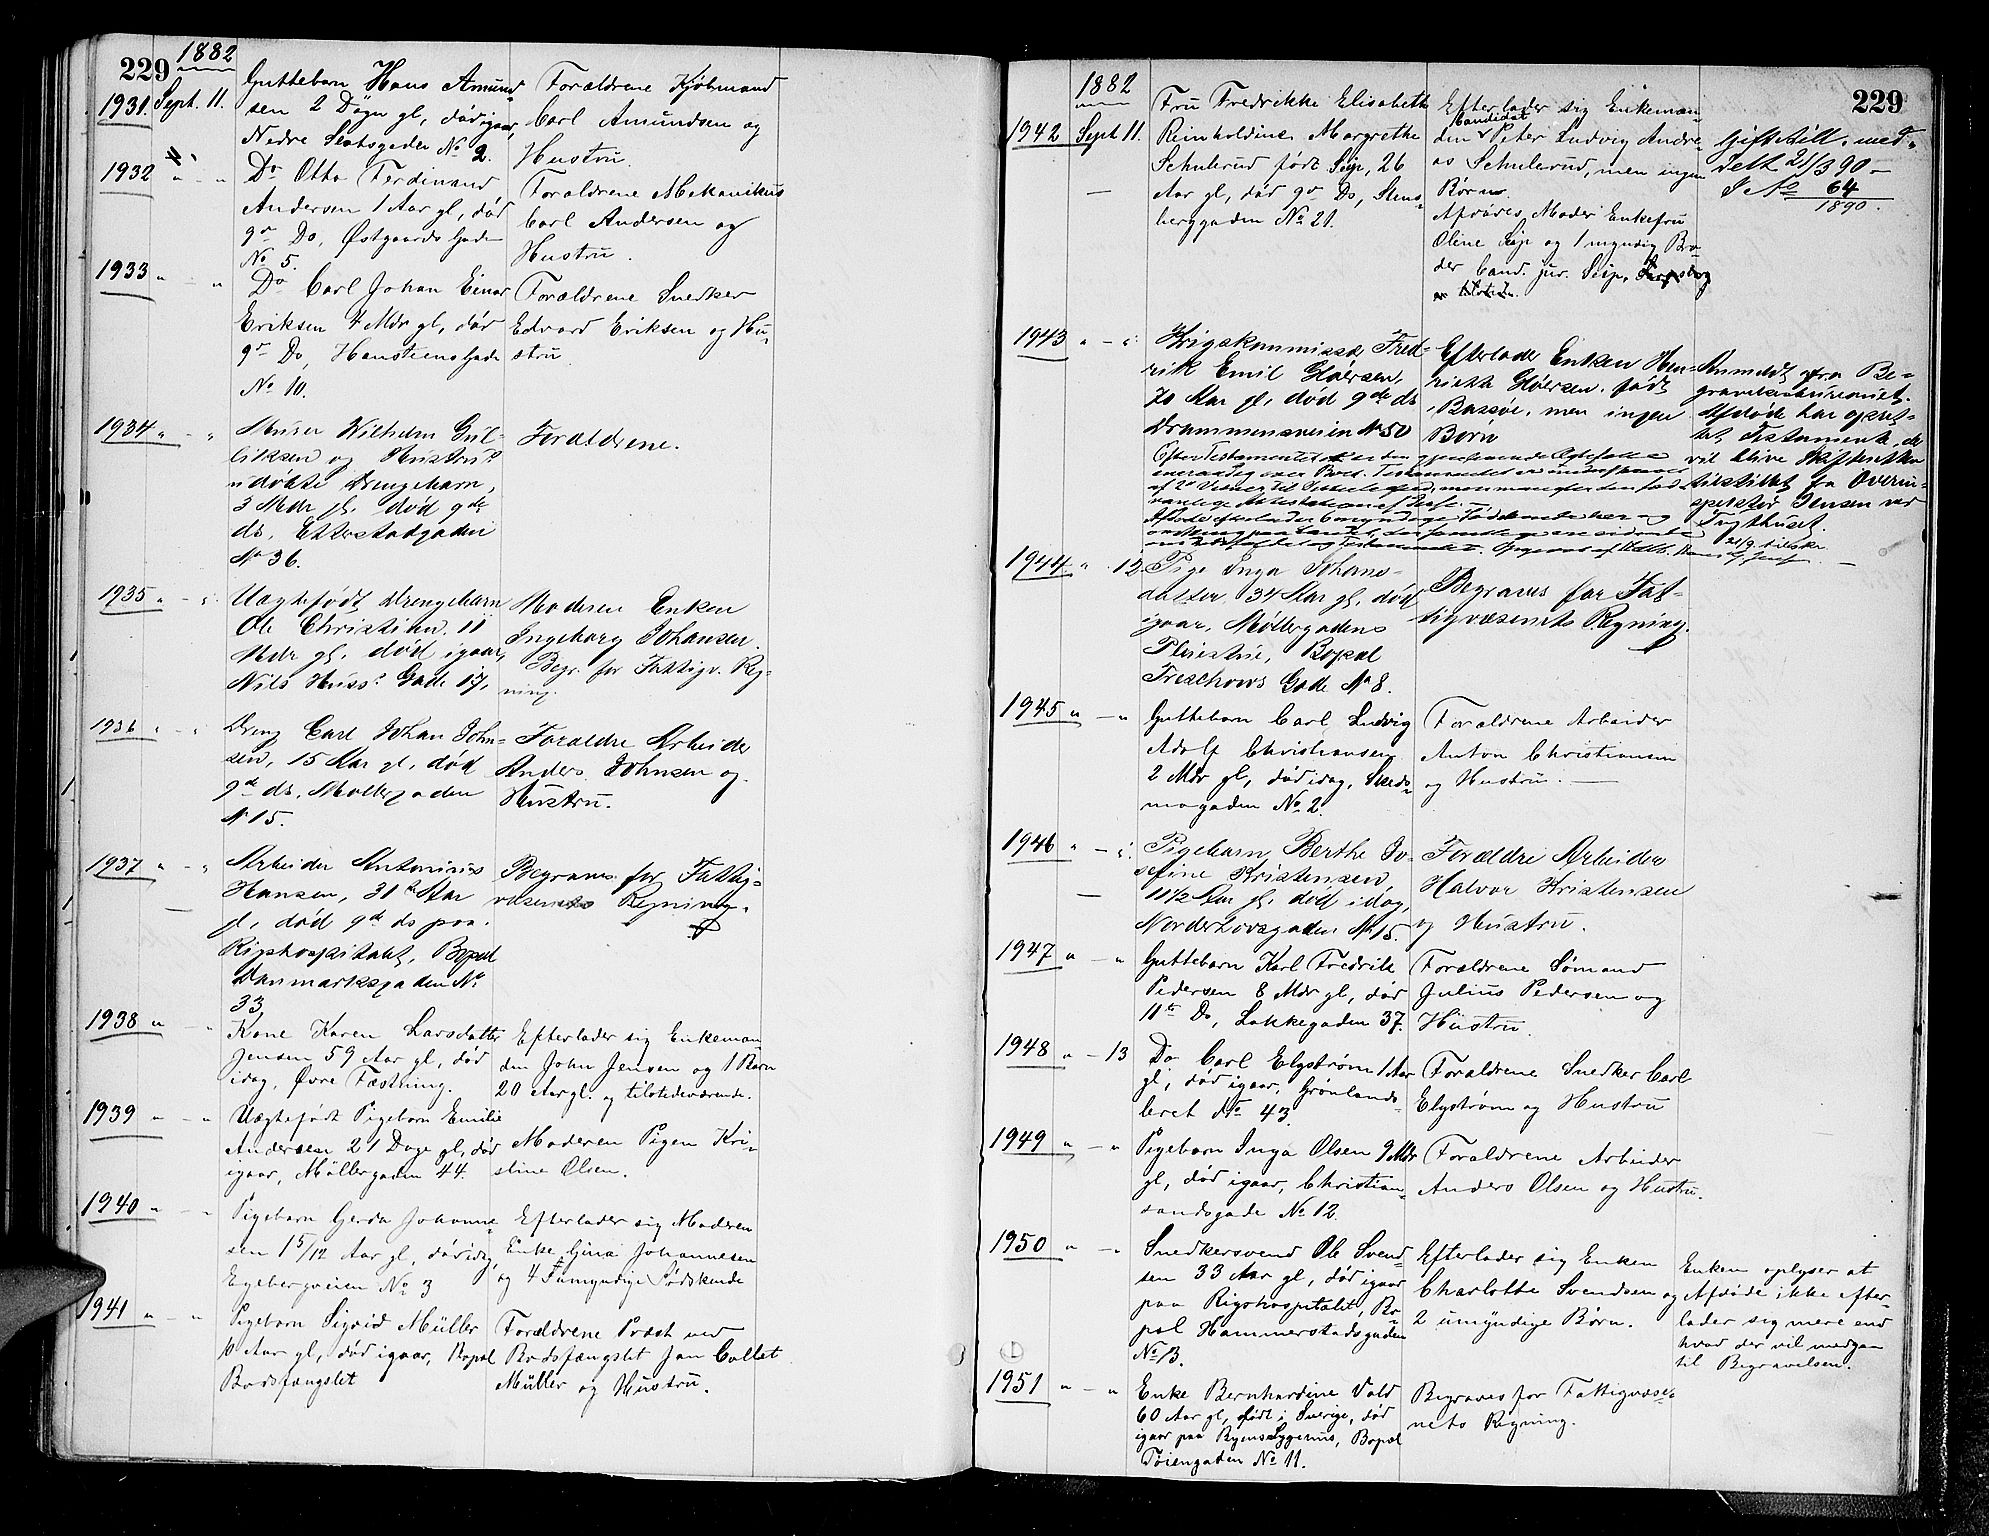 229
1882
1931. Sept. 11.
Guttebarn Hans Amund-
sen 2 Døgn gl, død igaar,
Nedre Slotsgaden No 2.
Forældrene Kjøbmand
Carl Amundsen og
Hustru.
1932 " - "
Do Otto Ferdinand
Andersen 1 Aar gl, død
9de Do, Østgaards Gade
No 5.
Forældrene Mekanikus
Carl Andersen og
Hustru.
1933 " - "
Do Carl Johan Einar
Eriksen 4 Mdr gl, død
9de Do, Hansteens Gade
No 10.
Forældrene Snedker
Edvard Eriksen og Hu-
stru
1934 " - "
Murer Wilhelm Gul-
liksen og Hustrus
udøbte Drengebarn,
3 Mdr gl. død 9de
ds, Etterstadgaden
No 36.
Forældrene.
1935 " - "
Uægtefødt Drengebarn
Ole Christian, 11
Mdr gl. død igaar,
Nils Huss' Gade 17.
Moderen Enken
Ingeborg Johansen.
Begr. for Fattigv. Reg-
ning.
1936 " - "
Dreng Carl Johan John-
sen, 15 Aar gl, død
9de ds, Møllergaden
No 15.
Forældre Arbeider
Anders Johnsen og
Hustru.
1937 " - "
Arbeider Antonius
Hansen, 31 Aar
gl, død 9de ds paa
Rigshospitalet, Bopæl
Danmarksgaden No
33
Begraves for Fattig-
væsenets Regning.
1938 " - "
Kone Karen Larsdatter
Jensen 59 Aar gl, død
idag, Øvre Fæstning.
Efterlader sig Enkeman-
den John Jensen og 1 Barn
20 Aar gl. og tilstedeværende.
1939 " - "
Uægtefødt Pigebarn Emilie
Andersen 21 Dage gl, død
igaar, Møllergaden 44.
Moderen Pigen Kri-
stine Olsen.
1940 " - "
Pigebarn Gerda Johanne-
sen 1 5/12 Aar gl, død idag,
Egebergveien No 3
Efterlader sig Moderen
Enke Gina Johannesen
og 4 umyndige Sødskende
1941 " - "
Pigebarn Sigrid Müller
10 Aar gl, død igaar, Bopæl
Bodsfængslet
Forældrene Præst ved
Bodsfængslet Jan Collet
Müller og Hustru.
229
1882
1942 Sept 11.
Fru Fredrikke Elisabeth
Reinholdine Margrethe
Schulerud født Seip, 26
Aar gl, død 9de Do, Stens-
berggaden No 21.
Efterlader sig Enkeman-
den Kandidat Peter Ludvig Andre
as Schulerud, men ingen
Børn.
Afdødes Moder Enkefru
Oline Seip og 1 myndig Bro-
der Cand. jur. Seip,
Giftetill. med-
delt 21/3 90 -
S No 64
1890.
1943 " - "
Krigskommissær Fred-
rik Emil Gløersen,
70 Aar gl, død 9de ds
Drammensveien No 50
Efterlader Enken Hen-
riette Gløersen, født
Bassøe, men ingen
Børn
Anmeldt fra Be-
gravelsesbureauet.
Afdøde har opret-
tet Testamente, der
vil blive Skifteretten
tilstillet fra Overin-
spektør Jensen ved
Tugthuset.
1944 " 12.
Pige Inga Johans-
datter 34 Aar gl, død
igaar, Møllergadens
Pleiestue, Bopæl
Treschows Gade No 8.
Begraves for Fat-
tigvæsenets Regning.
1945 " - "
Guttebarn Carl Ludvig
Adolf Christiansen
2 Mdr gl, død idag, Skeds-
mogaden No 2.
Forældrene Arbeider
Anton Christiansen
og Hustru.
1946 " - "
Pigebarn Berthe Jo-
sefine Kristensen
1 1/2 Aar gl. død idag,
Norderhovsgaden No 15.
Forældre Arbeider
Halvor Kristensen
og Hustru.
1947 " - "
Guttebarn Karl Fredrik
Pedersen 8 Mdr gl, død
11te Do, Lakkegaden 37.
Forældrene Sømand
Julius Pedersen og
Hustru.
1948 " - 13
Do Carl Elgstrøm 1 Aar
gl, død igaar, Grønlands-
leret No 43.
Forældrene Snedker Carl
Elgstrøm og Hustru
1949 " - "
Pigebarn Inga Olsen 9 Mdr
gl, død igaar, Christian-
sandsgade No 12.
Forældrene Arbeider
Anders Olsen og Hustru.
1950 " - "
Snedkersvend Ole Svend-
sen 33 Aar gl, død igaar
paa Rigshospitalet, Bo-
pæl Hammerstadsgaden
No 13.
Efterlader sig Enken
Charlotte Svendsen og
2 umyndige Børn.
Enken oplyser at
Afdøde ikke efter-
lader sig mere end
hvad der vil medgaa
til Begravelsen.
1951 " - "
Enke Bernhardine Vold
60 Aar gl, født i Sverige, død
igaar paa Byens Sygehus, Bopæl
Tøiengaden No 11.
Begraves for Fattigvæse-
nets Regning.